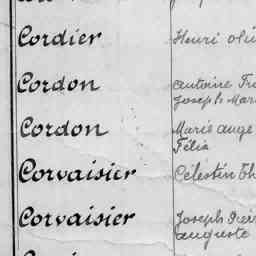 Cordier Henri
Cordon Antoine
Joseph
Cordon Marie ange
Félix
Corvaisier Célestin
Corvaisier Joseph
auguste